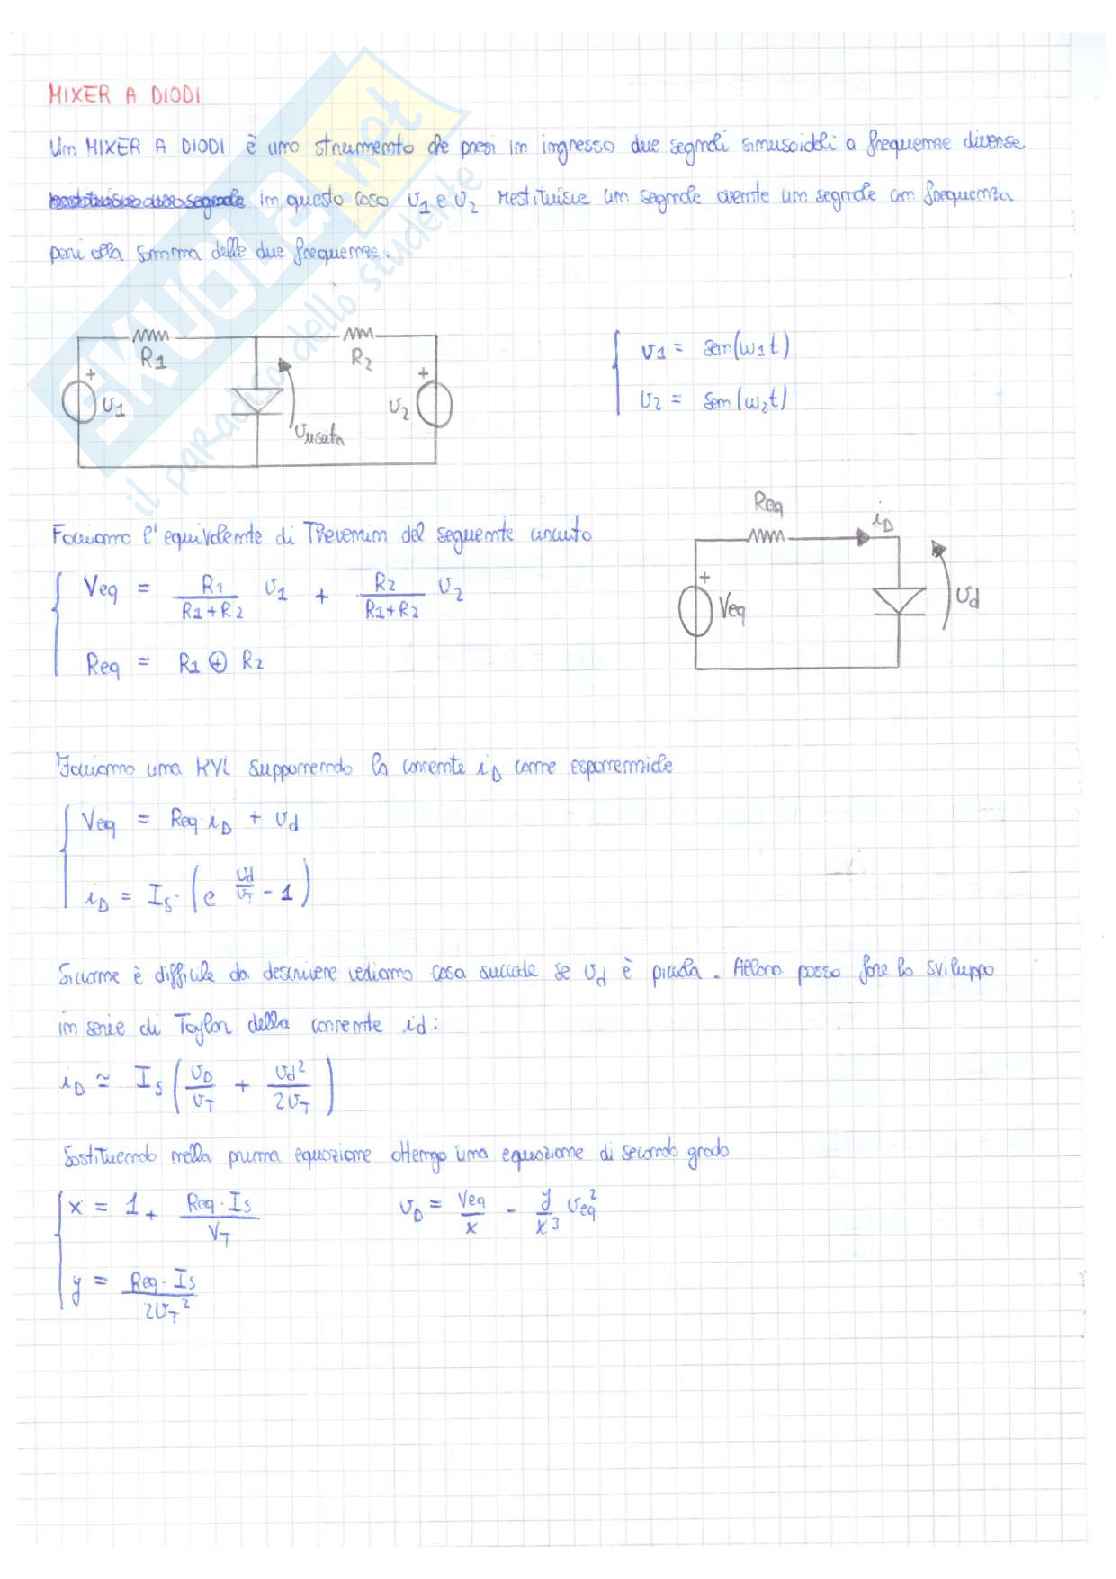 MIXER A DIODI
Un MIXER A DIODI è uno strumento che presi in ingresso due segnali sinusoidali a frequenze diverse
in questo caso υ1 e υ2 restituisce un segnale avente un segnale con frequenza
pari alla somma delle due frequenze.
R1 R2
+ υ1 υusata υ2 +
υ1 = sen(ω1t)
υ2 = sen(ω2t)
Facciamo l'equivalente di Thevenin del seguente circuito
Veq = R1/(R1+R2) υ1 + R2/(R1+R2) υ2
Req = R1 ⊕ R2
Req iD
+ Veq υd
Facciamo una KVL supponendo la corrente iD come esponenziale
Veq = Req iD + υd
iD = Is·(e^(υd/υT) - 1)
Siccome è difficile da descrivere vediamo cosa succede se υd è piccola. Allora posso fare lo sviluppo
in serie di Taylor della corrente id:
iD ≃ Is(υD/υT + υd²/2υT)
Sostituendo nella prima equazione ottengo una equazione di secondo grado
x = 1 + Req·Is/VT
υD = Veq/x - y/x³ υeq²
y = Req·Is/2υT²
SKUOLA.net
il paradiso dello studente